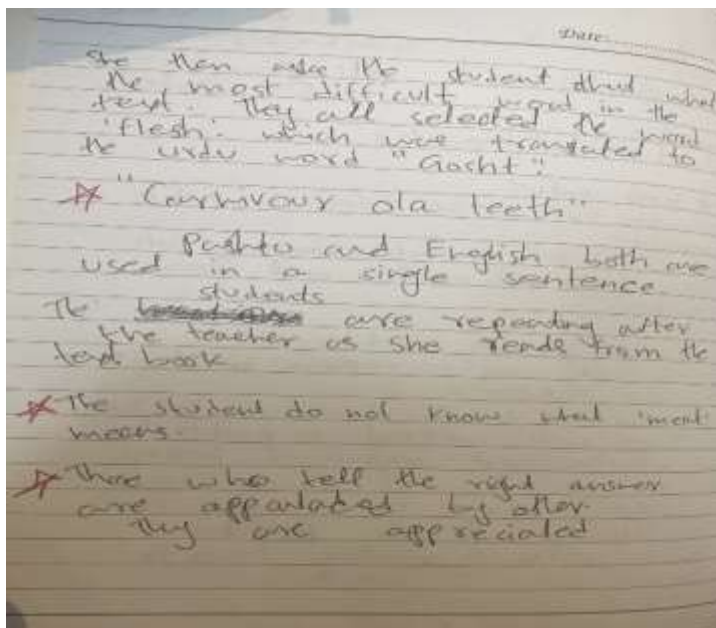 Date:
She then asks the student that what
the most difficult word in the
text. They all selected the word
'flesh' which was translated to
the urdu word "Gosht".
"Carnivour ola teeth"
Pashto and English both are
used in a single sentence
students
The are repeating after
the teacher as she reads from the
text book
The student do not know what 'meat'
means.
Those who tell the right answer
are appauladed by other.
They are appreciated